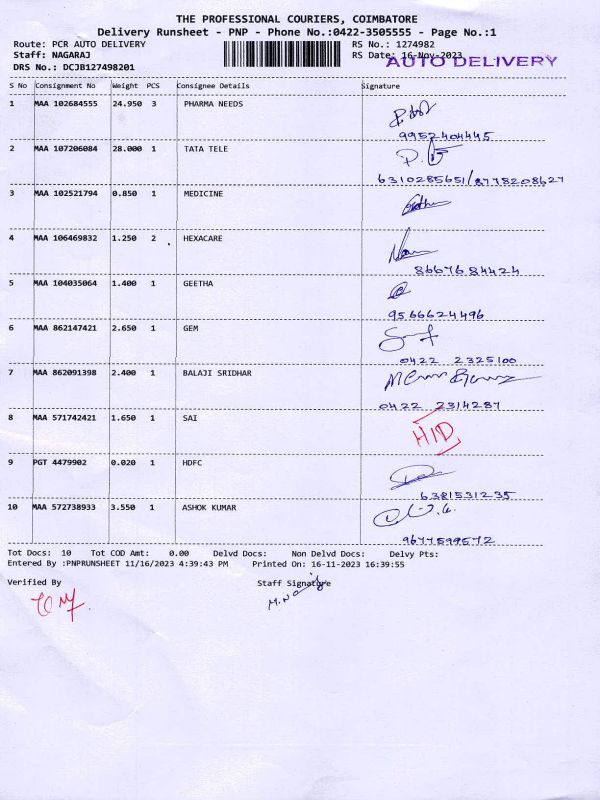 THE PROFESSIONAL COURIERS, COIMBATORE
Delivery Runsheet - PNP - Phone No.:0422-3505555 - Page No.:1
Route: PCR AUTO DELIVERY RS No.: 1274982
Staff: NAGARAJ RS Date: 16-Nov-2023
AUTO DELIVERY
DRS No.: DCJB127498201
S No Consignment No Weight PCS Consignee Details Signature
1 MAA 102684555 24.950 3 PHARMA NEEDS
9952404445
2 MAA 107206084 28.000 1 TATA TELE
6310285651/8778208627
3 MAA 102521794 0.850 1 MEDICINE
4 MAA 106469832 1.250 2 HEXACARE
8667684424
5 MAA 104035064 1.400 1 GEETHA
9566624496
6 MAA 862147421 2.650 1 GEM
0422 2325100
7 MAA 862091398 2.400 1 BALAJI SRIDHAR
0422 2314287
8 MAA 571742421 1.650 1 SAI
H/D
9 PGT 4479902 0.020 1 HDFC
6381531235
10 MAA 572738933 3.550 1 ASHOK KUMAR
9677599572
Tot Docs: 10 Tot COD Amt: 0.00 Delvd Docs: Non Delvd Docs: Delvy Pts:
Entered By :PNPRUNSHEET 11/16/2023 4:39:43 PM Printed On: 16-11-2023 16:39:55
Verified By Staff Signature